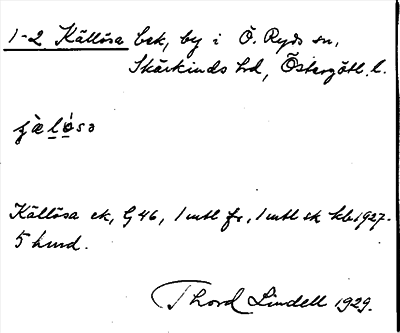 1-2 Källösa bek, by i Ö. Ryds sn,
Skärkinds hd, Östergötl. l.
Källösa ek, G 46, 1 mtl fr, 1 mtl sk kb 1927.
5 hmd.
Thord Lindell 1929.